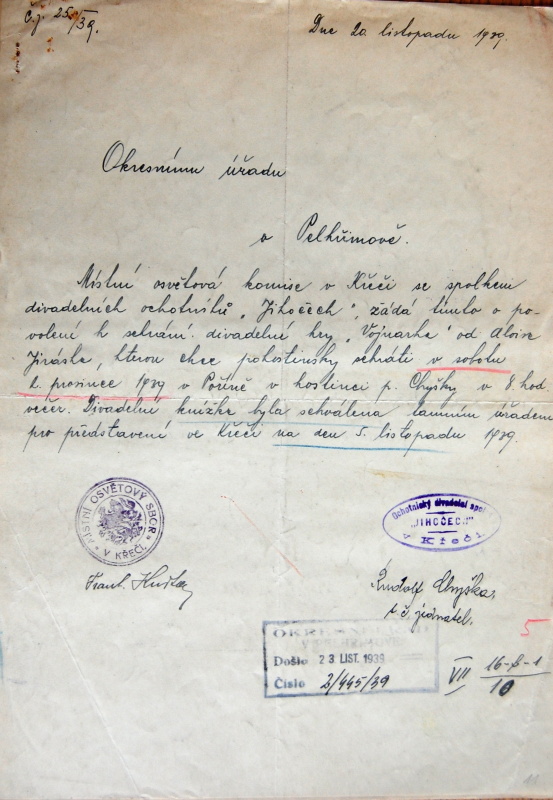 Č. j. 25/39.
Dne 20. listopadu 1939.
Okresnímu úřadu
v Pelhřimově.
Místní osvětová komise v Křeči se spolkem
divadelních ochotníků „Jihočech", žádá tímto o po-
volení k sehrání divadelní hry „Vojnarka" od Aloise
Jiráska, kterou chce pohostinsky sehráti v sobotu
2. prosince 1939 v Poříně v hostinci p. Chyšky v 8. hod
večer. Divadelní knížka byla schválena tamním úřadem
pro představení ve Křeči na den 5. listopadu 1939.
MÍSTNÍ OSVĚTOVÝ SBOR
V KŘEČI.
Ochotnický divadelní spol.
„JIHOČECH"
v Křeči
Frant.
Rudolf Chyška,
t. č. jednatel.
5
Došlo 23 LIST. 1939
Číslo 2/445/39
VII 16-8-1
10
11